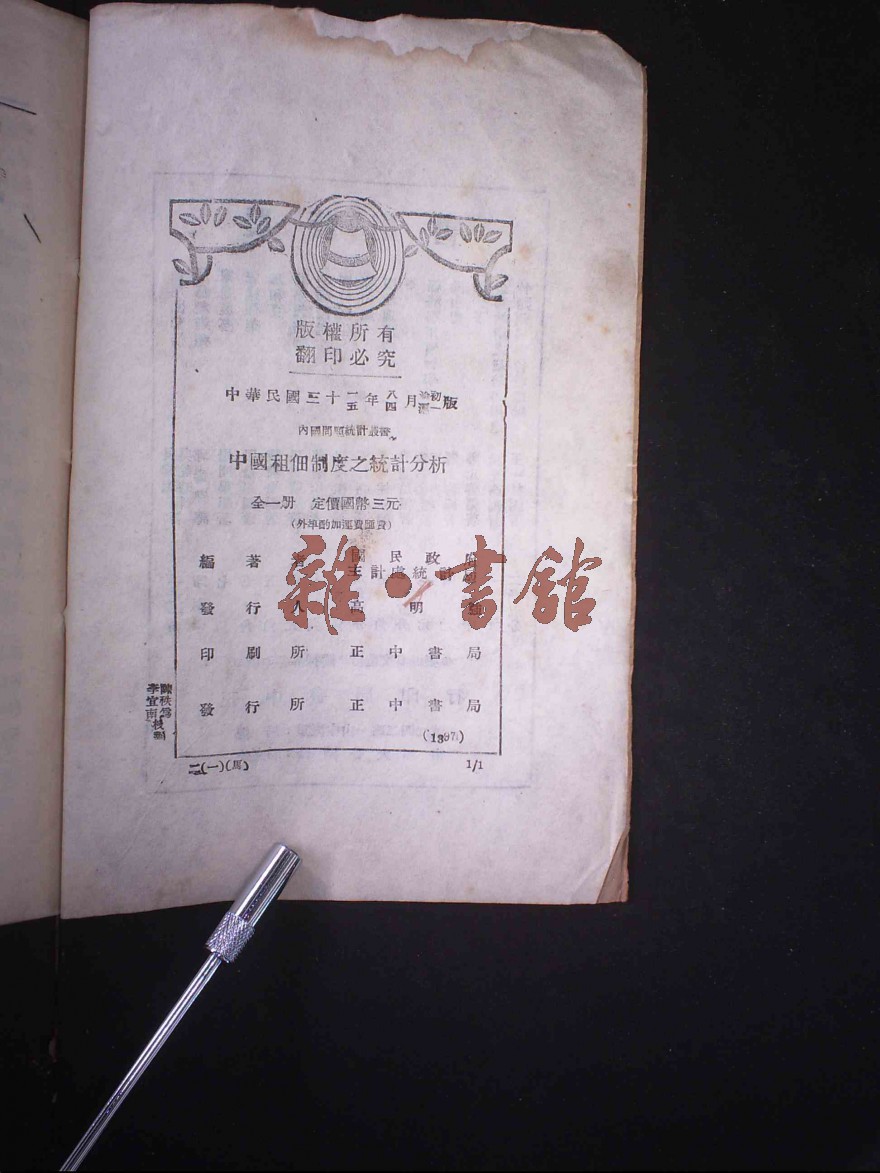 版權所有
翻印必究
中華民國三十一五年八四月渝初滬一版
內國問題統計叢書
中國租佃制度之統計分析
全一册 定價國幣三元
(外埠酌加運費匯費)
編著者 國民政府
主計處統計局
發行人 高明強
印刷所 正中書局
發行所 正中書局
(1397)
陳秩為
李宜南校
二(一)(馬) 1/1
雜·書館